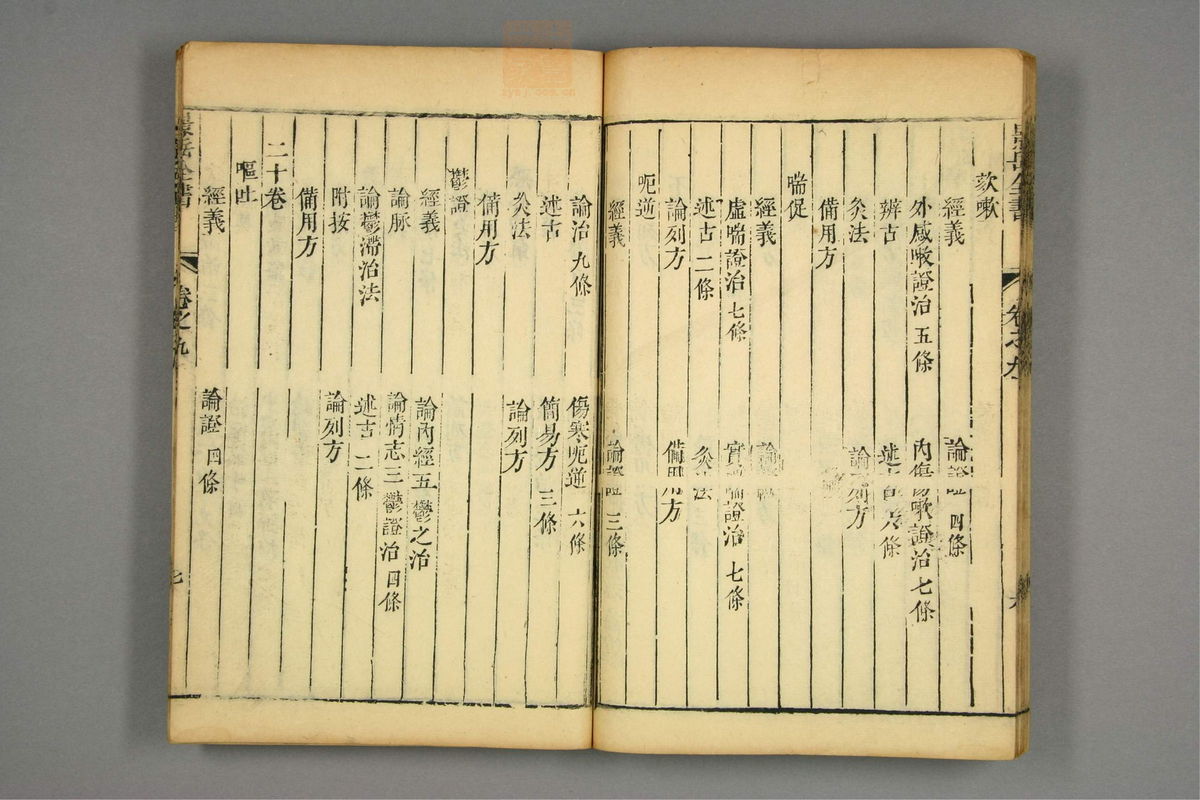 欬嗽
經義 論證 四條
外感嗽證治 五條 內傷嗽證治 七條
辨古 述古 六條
灸法 論列方
備用方
喘促
經義 論證
虛喘證治 七條 實喘證治 七條
述古 二條 灸法
論列方 備用方
呃逆
經義 論證 三條
景岳全書 卷之九 六
論治 九條 傷寒呃逆 六條
述古 簡易方 三條
灸法 論列方
備用方
鬱證
經義 論內經五鬱之治
論脈 論情志三鬱證治 四條
論鬱滯治法 述古 二條
附按 論列方
備用方
二十卷
嘔吐
經義 論證 四條
景岳全書 卷之九 七